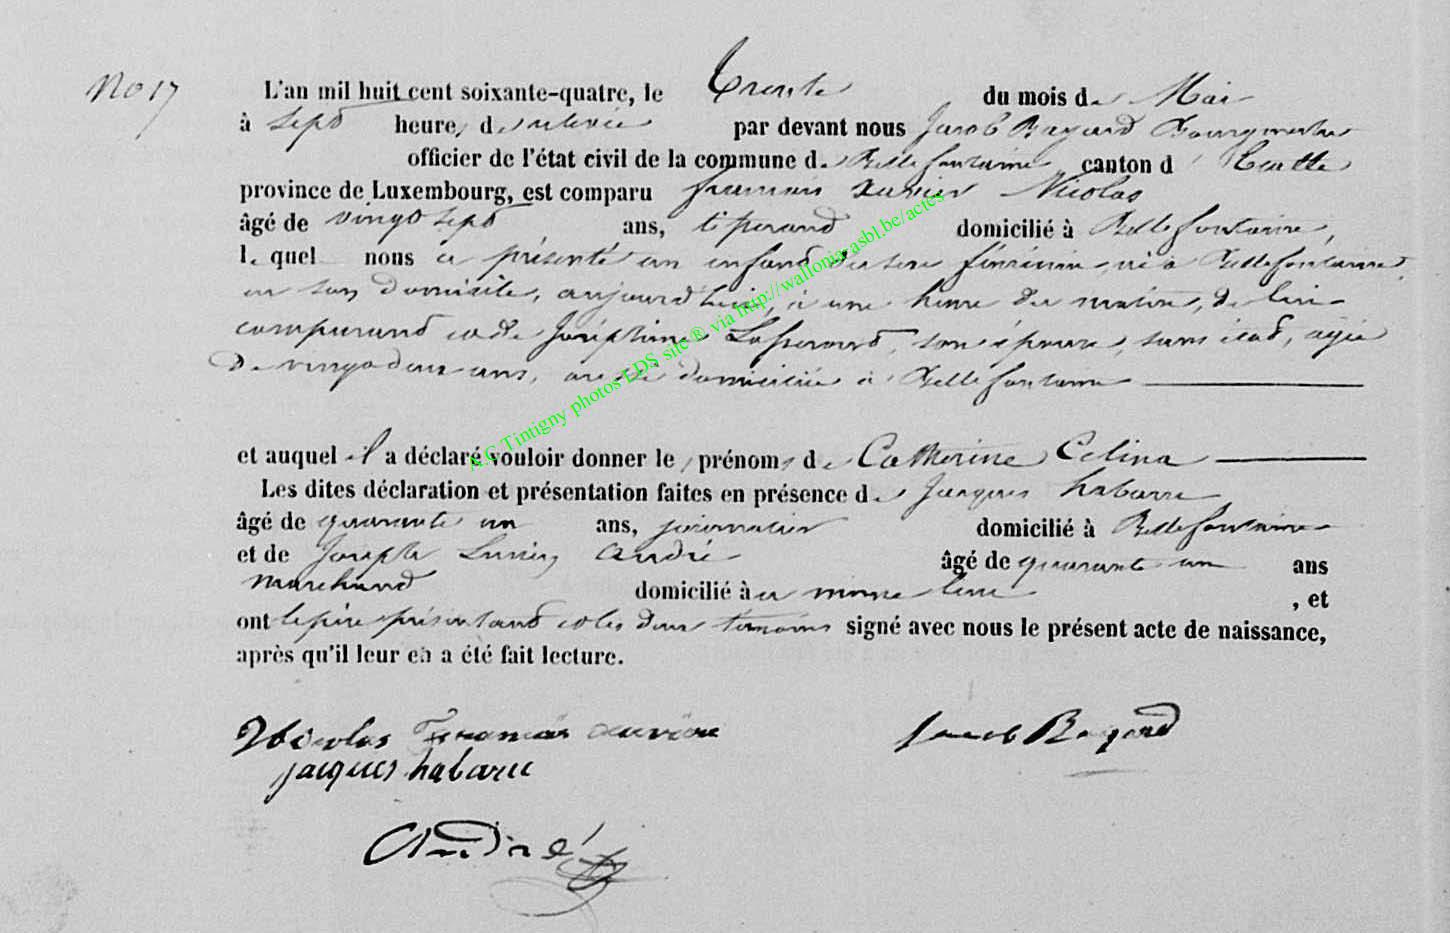 No 17
L'an mil huit cent soixante-quatre, le Trente du mois de Mai
à sept heures de relevée par devant nous Jacob Bayard Bourgmestre
officier de l'état civil de la commune de Bellefontaine canton d' Etalle
province de Luxembourg, est comparu françois Xavier Nicolas
âgé de vingt sept ans, domicilié à Bellefontaine,
lequel nous a présenté un enfant du sexe féminin né à Bellefontaine,
en son domicile, aujourd'hui, à une heure du matin, de lui
comparant et de Joséphine son épouse, sans état, agée
de vingt deux ans, domiciliée à Bellefontaine
et auquel il a déclaré vouloir donner les prénoms de Catherine Celina
Les dites déclaration et présentation faites en présence de Jacques habaru
âgé de quarante un ans, journalier domicilié à Bellefontaine
et de Joseph Lucien André âgé de quarante un ans
marchand domicilié à u même lieu, et
ont le père présentant et les deux témoins signé avec nous le présent acte de naissance,
après qu'il leur en a été fait lecture.
Nicolas François xavier
Jacob Bayard
jacques habaru
André
A.C Tintigny photos LDS site ® via http://walloniacasbl.be/actes